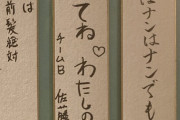 はナンはナンでも
てね♡わたしの
チームB
佐藤
は
前髪絶対